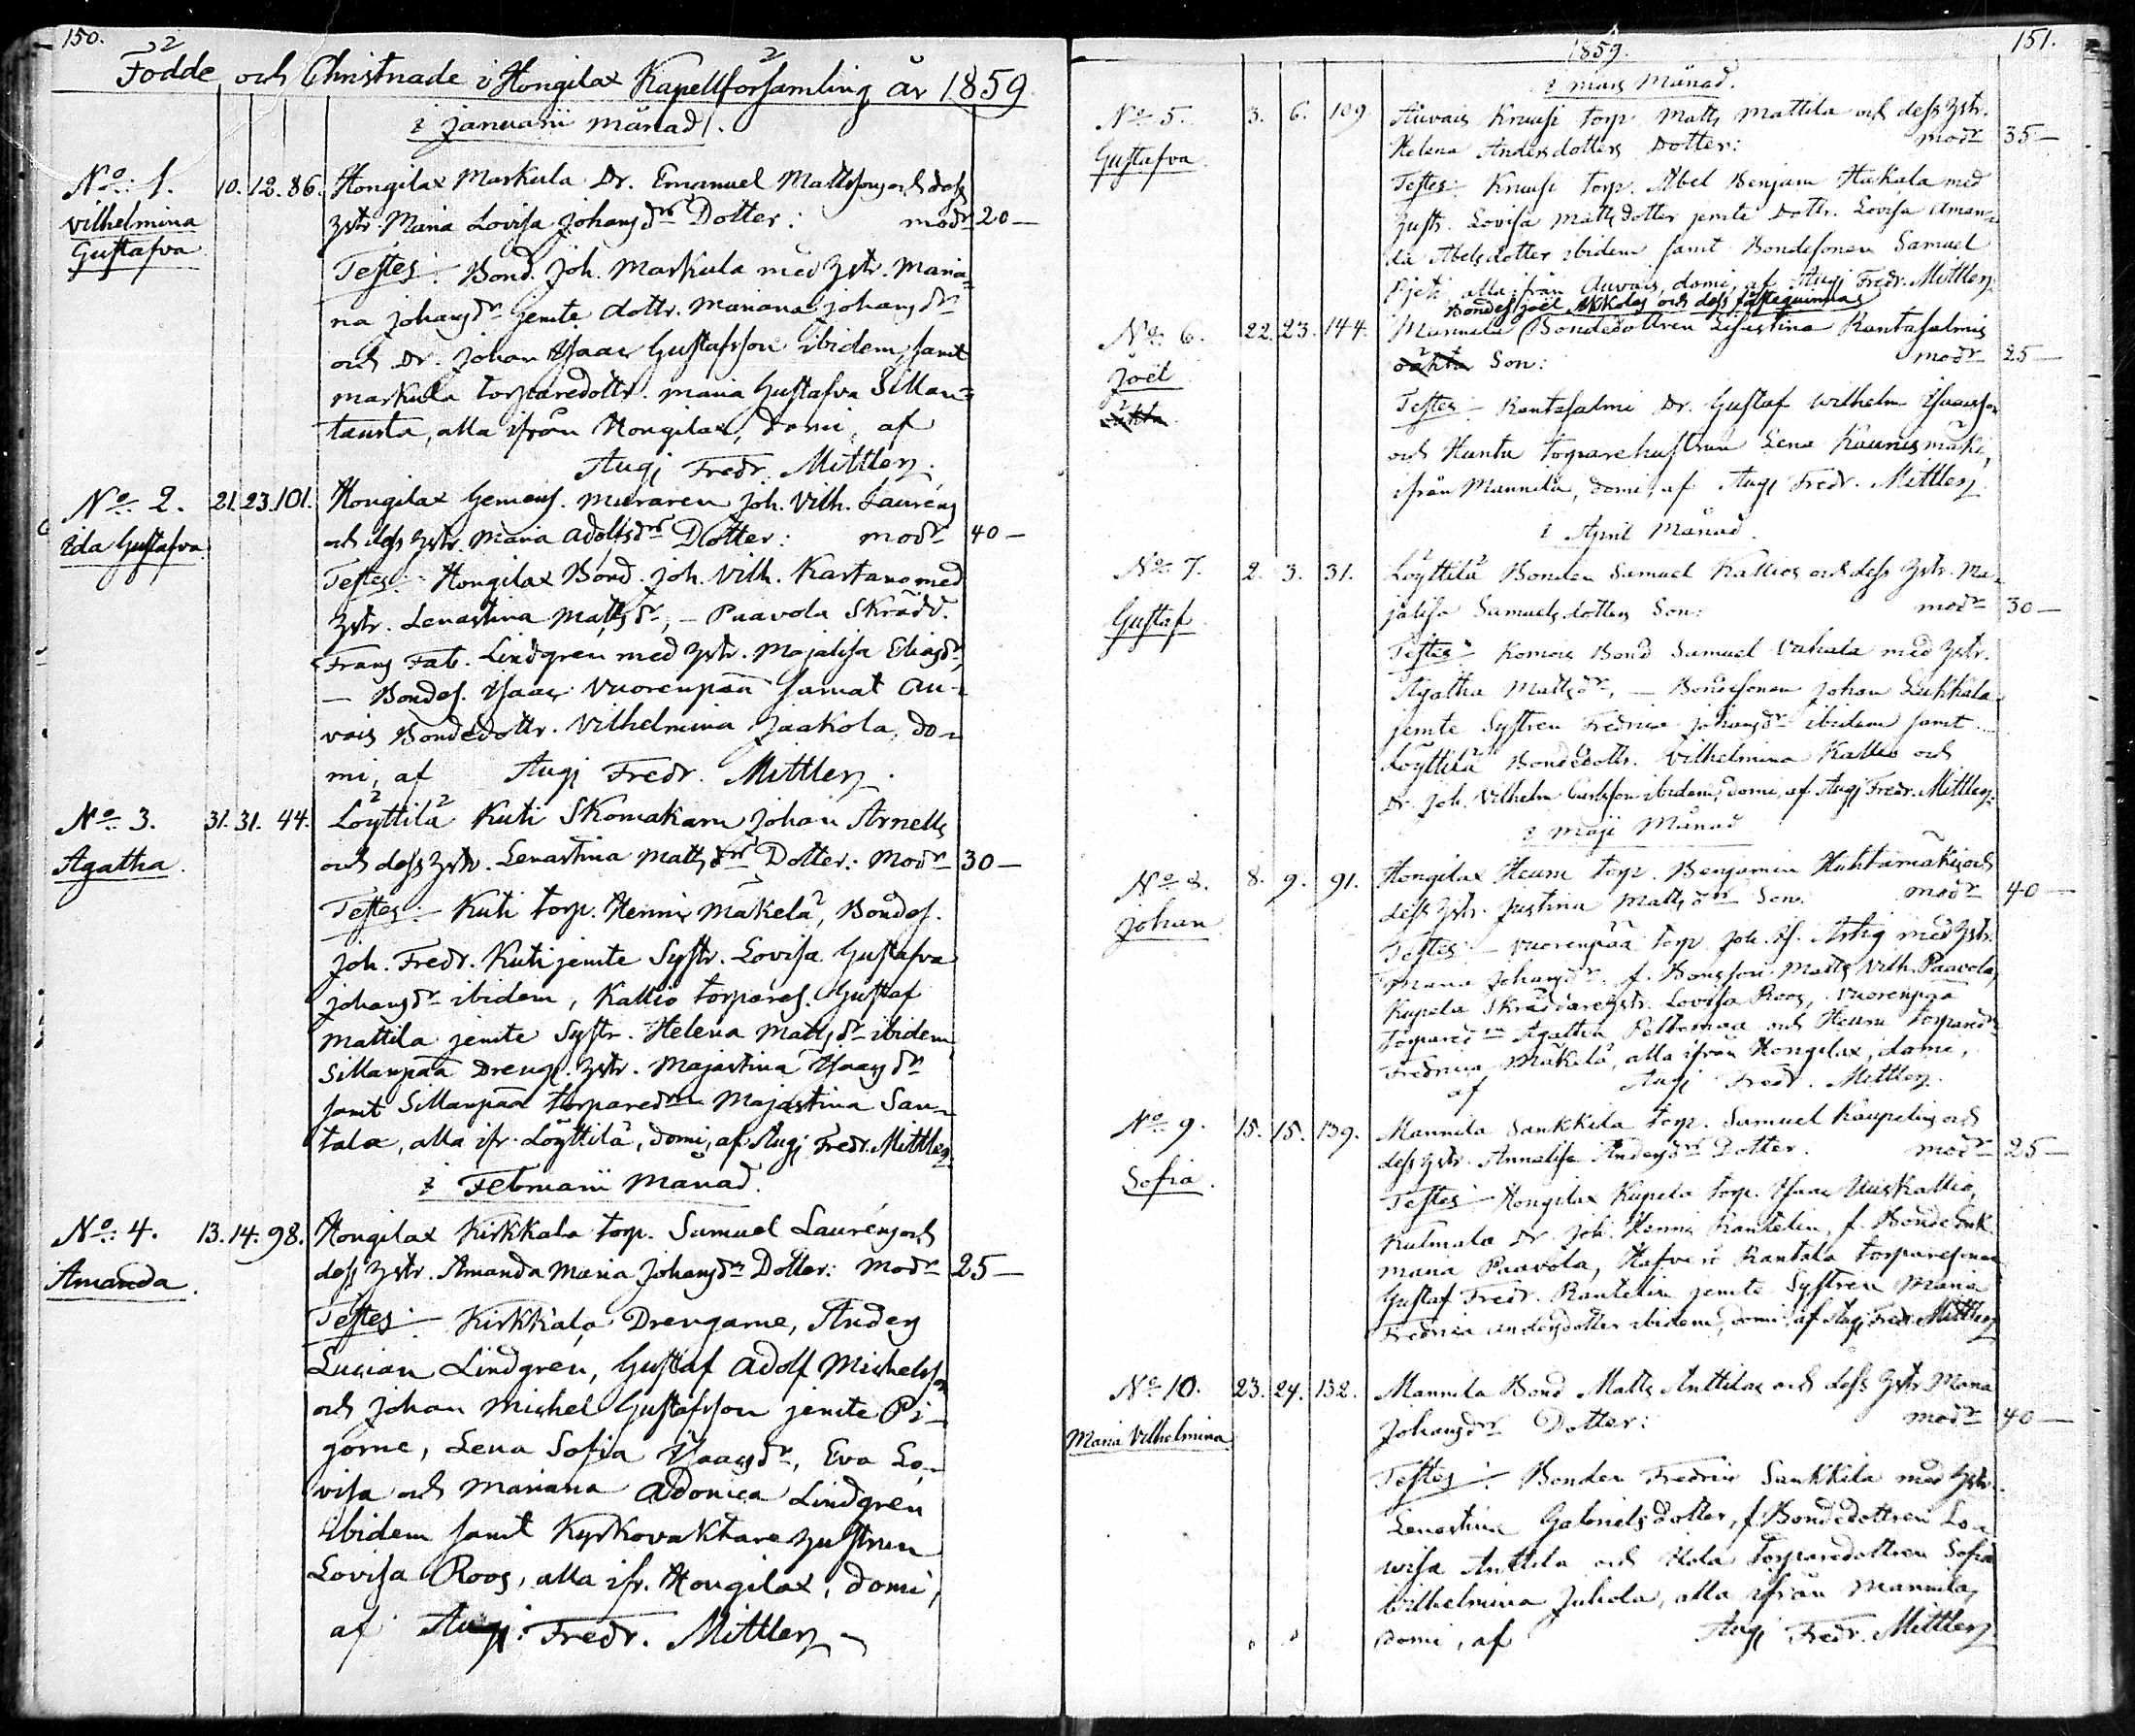 150.
Födde och Christnade i Hongilax Kapellförsamling år 1859
i Januarii månad.
No. 1. 10. 12. 86. Hongilax Markula Dr. Emanuel Mattssons och dess
Vilhelmina hstr. Maria Lovisa Johansdr Dotter: modr 20 —
Gustafva
Testes: Bond. Joh. Markula med hstr. Maria-
na Johansdr jemte dottr. Mariana Johansdr
och Dr. Johan Isaac Gustafsson ibidem, samt
Markula torparedottr. Maria Gustafva Sillan-
tausta, alla ifrån Hongilax, domi, af
Aug. Fredr. Mittler.
No. 2. 21. 23. 101. Hongilax Muraren Joh. Vilh. Lauréns
Ida Gustafva och dess hstr. Maria Adolfsdr Dotter: modr 40 —
Testes: Hongilax Bond. Joh. Vilh. Kartano med
hstr. Lenastina Mattsdr, — Paavola Skrädd.
Frans Fab. Lindgren med hstr. Majalisa Eliasdr,
— Bondes. Isaac Vuorenpää samt Au-
vais Bondedottr. Vilhelmina Jaakola, do-
mi, af Aug. Fredr. Mittler.
No. 3. 31. 31. 44. Löyttilä Kuti Skomakarn Johan Arnells
Agatha och dess hstr. Lenastina Mattsdr Dotter: Modr 30 —
Testes: Kuti torp. Henric Mäkelä, Bondes.
Joh. Fredr. Kuti jemte Systr. Lovisa Gustafva
Johansdr ibidem, Kallio torpares. Gustaf
Mattila jemte Systr. Helena Mattsdr ibidem
Sillanpää Drengs. hstr. Majastina Isaacsdr
samt Sillanpää torparedrn Majastina San-
tala, alla ifr. Löyttilä, domi, af Aug. Fredr. Mittler.
i Februarii Månad.
No. 4. 13. 14. 98. Hongilax Kirkkala torp. Samuel Lauréns och
Amanda dess hstr. Amanda Maria Johansdr Dotter: Modr 25 —
Testes: Kirkkala Drengarne, Anders
Lucian Lindgren, Gustaf Adolf Michelsson
och Johan Michel Gustafsson jemte Pi-
gorne, Lena Sofia Isaacsdr, Eva Lo-
visa och Mariana Adonica Lindgren
ibidem samt Kyrkovaktare hustrun
Lovisa Roos, alla ifr. Hongilax, domi,
af Aug. Fredr. Mittler
151.
1859.
i Mars Månad.
No. 5. 3. 6. 109. Auvais Knuusi torp. Matts Mattila och dess hstr.
Gustafva Helena Andersdotters Dotter: modr 35 —
Testes: Knuusi torp. Abel Benjam Hakala med
hustr. Lovisa Mattsdotter jemte Dottr. Lovisa Aman-
da Abelsdotter ibidem samt Bondesonen Samuel
alla ifrån Auvais, domi, af Aug. Fredr. Mittler.
Bondes. Joël och dess fästeqvinnas
No. 6. 22. 23. 144. Mannila Bondedottren Rantasalmis
Joël oäkta Son: modr 25 —
oäkta
Testes: Rantasalmi Dr. Gustaf Wilhelm Isaacsson
och Huntu torparehustrun Lena Kaunismäki,
ifrån Mannila, domi, af Aug. Fredr. Mittler
i April Månad.
No. 7. 2. 3. 31. Löyttilä Bonden Samuel Kallios och dess hstr. Ma-
Gustaf jalisa Samuelsdotters Son: modr 30 —
Testes: Komois Bond Samuel Vahala med hstr.
Agatha Mattsdr, — Bondesonen Johan Sukkala
jemte Systren Fredrica Johansdr ibidem samt
Löyttilä Bondedottr. Vilhelmina Kallio och
Dr. Joh. Vilhelm Carlsson ibidem, domi, af Aug. Fredr. Mittler.
i Maji Månad
No. 8. 8. 9. 91. Hongilax Heurn torp. Benjamin Huhtamäkis och
Johan dess hstr. Justina Mattsdr Son: modr 40 —
Testes: Vuorenpää torp. Joh. Is. Arhig med hstr.
Maria Johansdr. f. Bondeson Matts Vilh. Paavola,
Kupela Skräddarehstr. Lovisa Roos, Vuorenpää
Torparedrn Agatha Peltomaa och Heurn torparedr
Fredrica Mäkelä, alla ifrån Hongilax, domi,
af Aug. Fredr. Mittler.
No. 9. 15. 15. 139. Mannila Sankkila torp. Samuel Kaupelins och
Sofia dess hstr. Annalisa Andersdr Dotter. modr 25 —
Testes: Hongilax Kupela torp. Isaac Uuskallio,
Kulmala Dr. Joh. Henric Rantelin, f. Bondeenk.
Maria Paavola, Hafverö Rantala torparesonen
Gustaf Fredr. Rantelin jemte Systren Maria
Fredrica Andersdotter ibidem, domi, af Aug. Fredr. Mittler
No. 10. 23. 24. 132. Mannila Bond Matts Anttilas och dess hstr. Maria
Maria Vilhelmina Johansdr Dotter: modr 40 —
Testes: Bonden Fredric Sankkila med hstr.
Lenastina Gabrielsdotter, f. Bondedottren Lo-
wisa Anttila och Uola Torparedottren Sofia
Wilhelmina Juhola, alla ifrån Mannila,
domi, af Aug. Fredr. Mittler